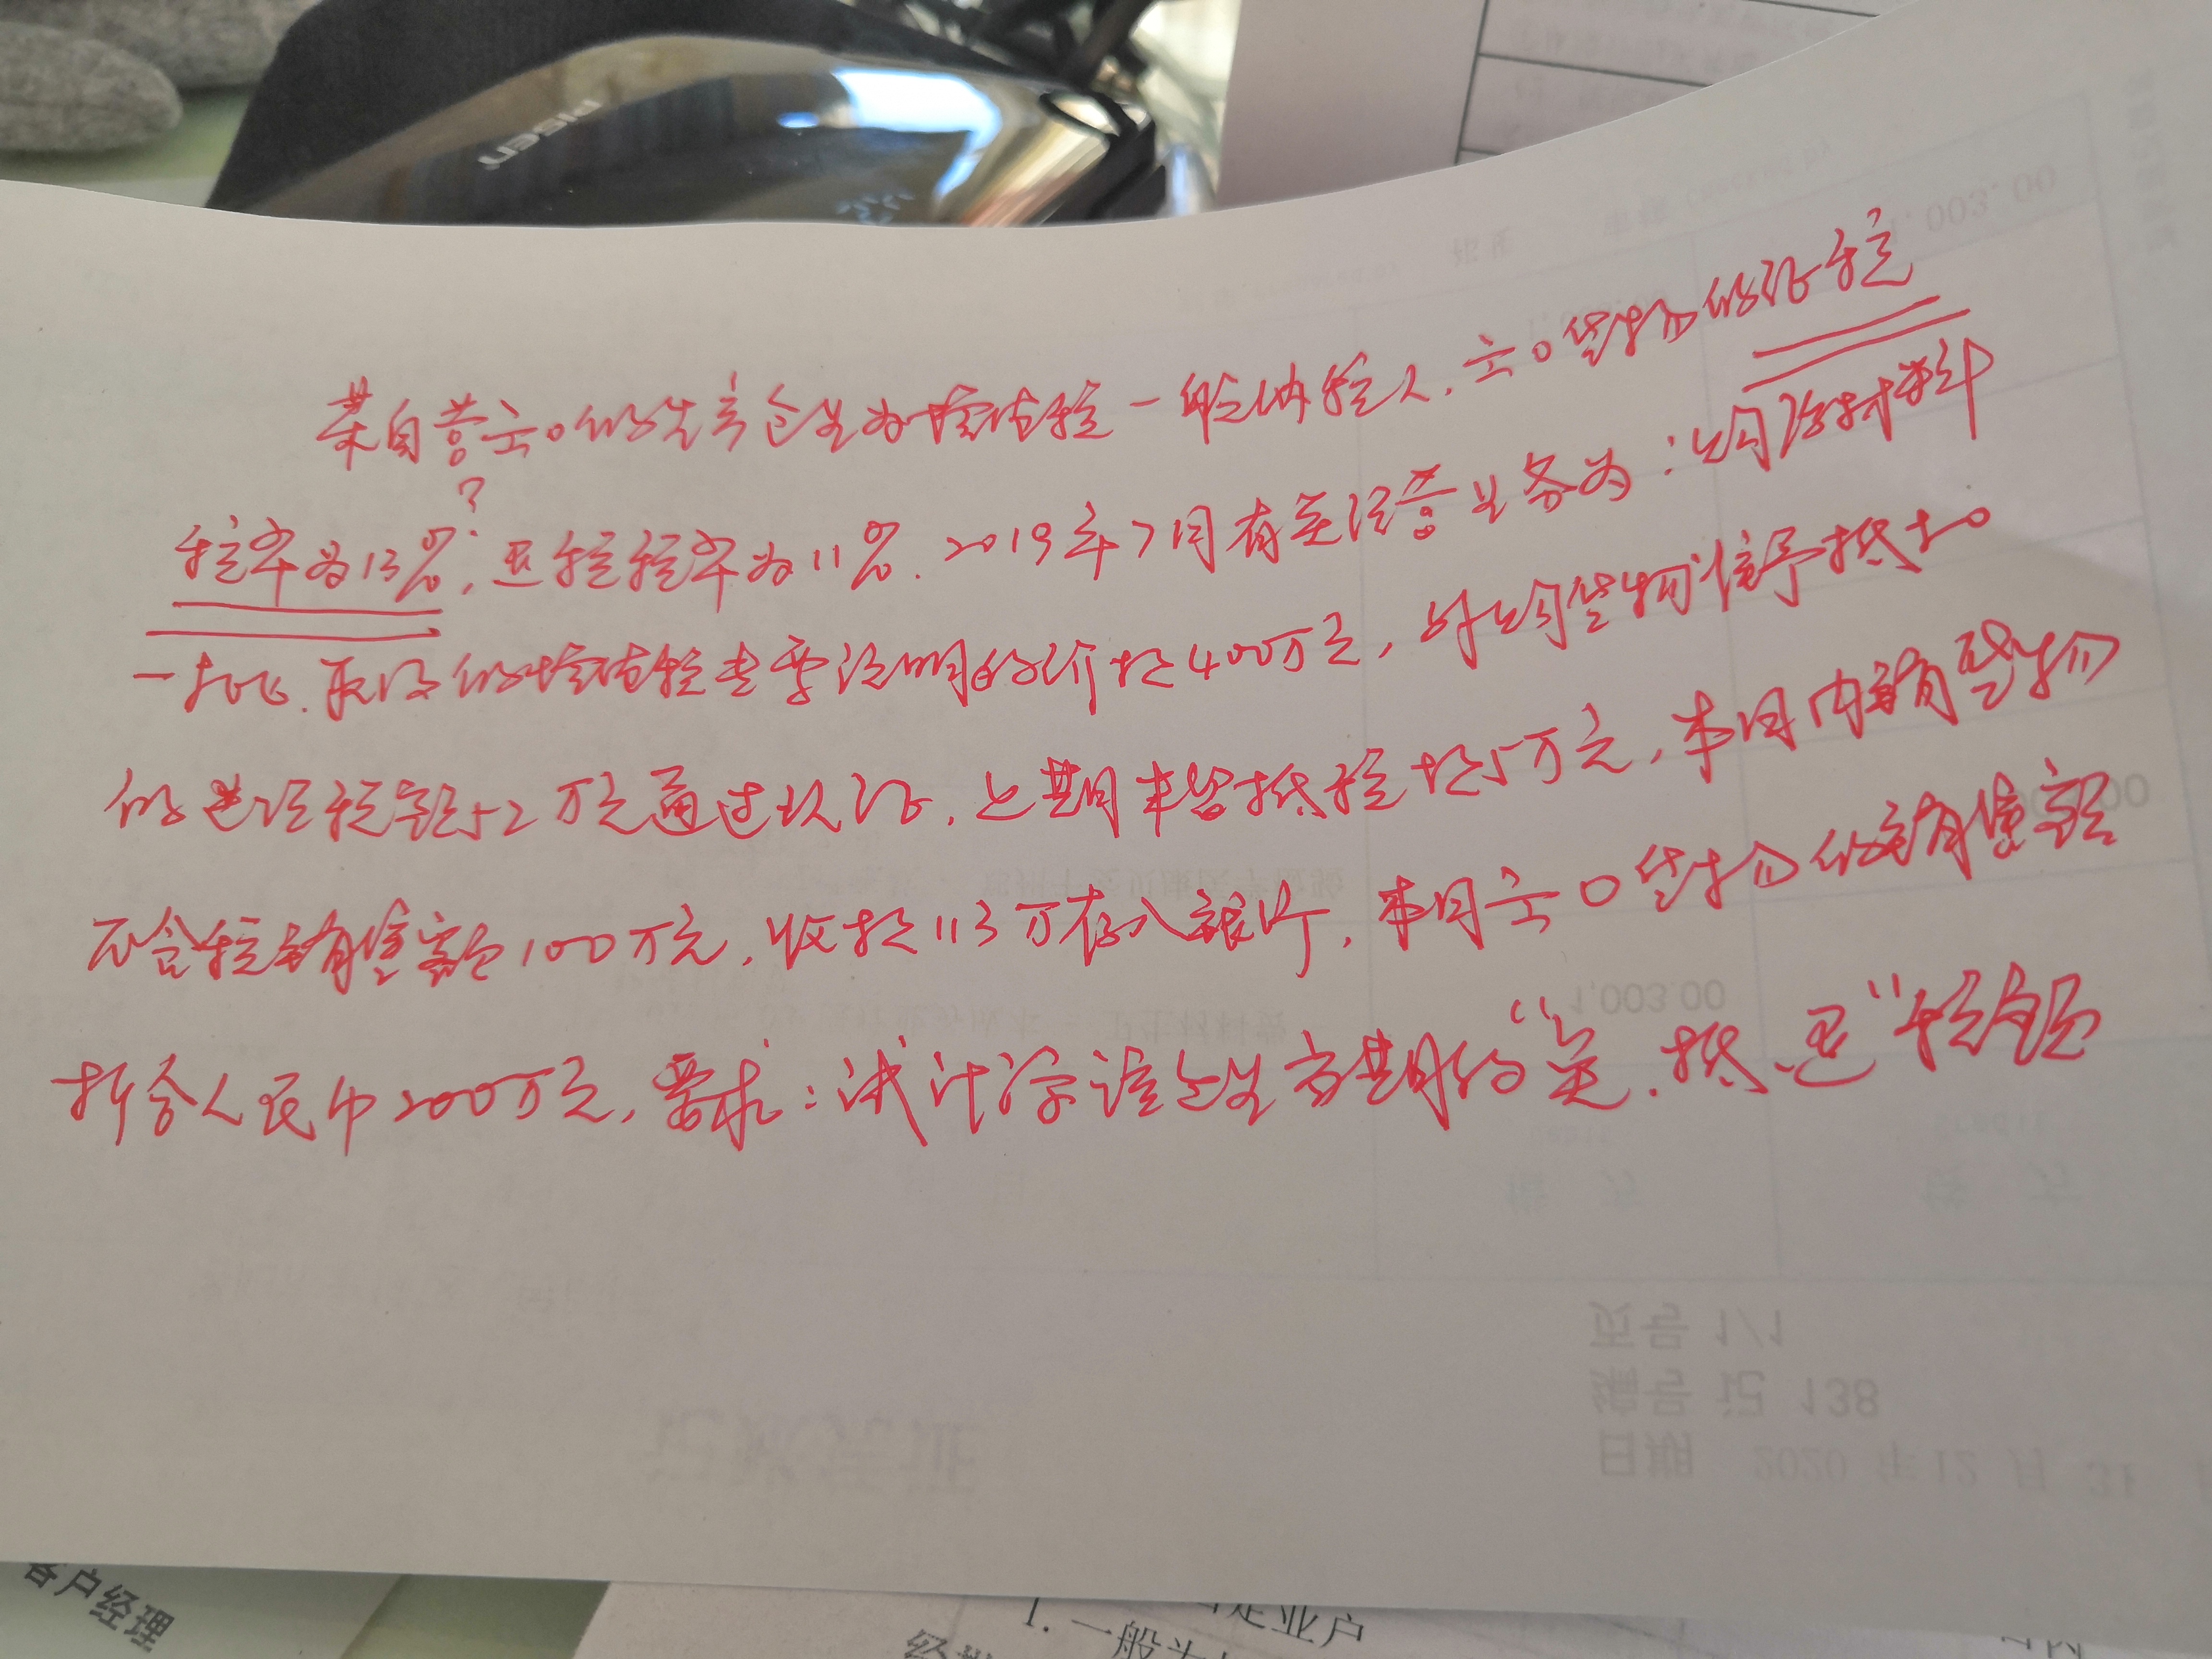 某自营出口的生产企业为增值税一般纳税人,出口货物的征税
?
税率为13%,退税税率为11%.2019年7月有关经营业务为:购原材料
一批.取得的增值税专票注明的价款400万元,外购货物准予抵扣
的进项税额52万元通过认证,上期末留抵税款5万元,本月内销货物
不含税销售额100万元,收款113万存入银行,本月出口货物的销售额
折合人民币200万元,要求:试计算该企业当期的“免.抵.退”税额
1,003.00
页号 1/1
编号 记 138
日期 2020 年 12 月 31
记账凭证
客户经理
1. 一般为